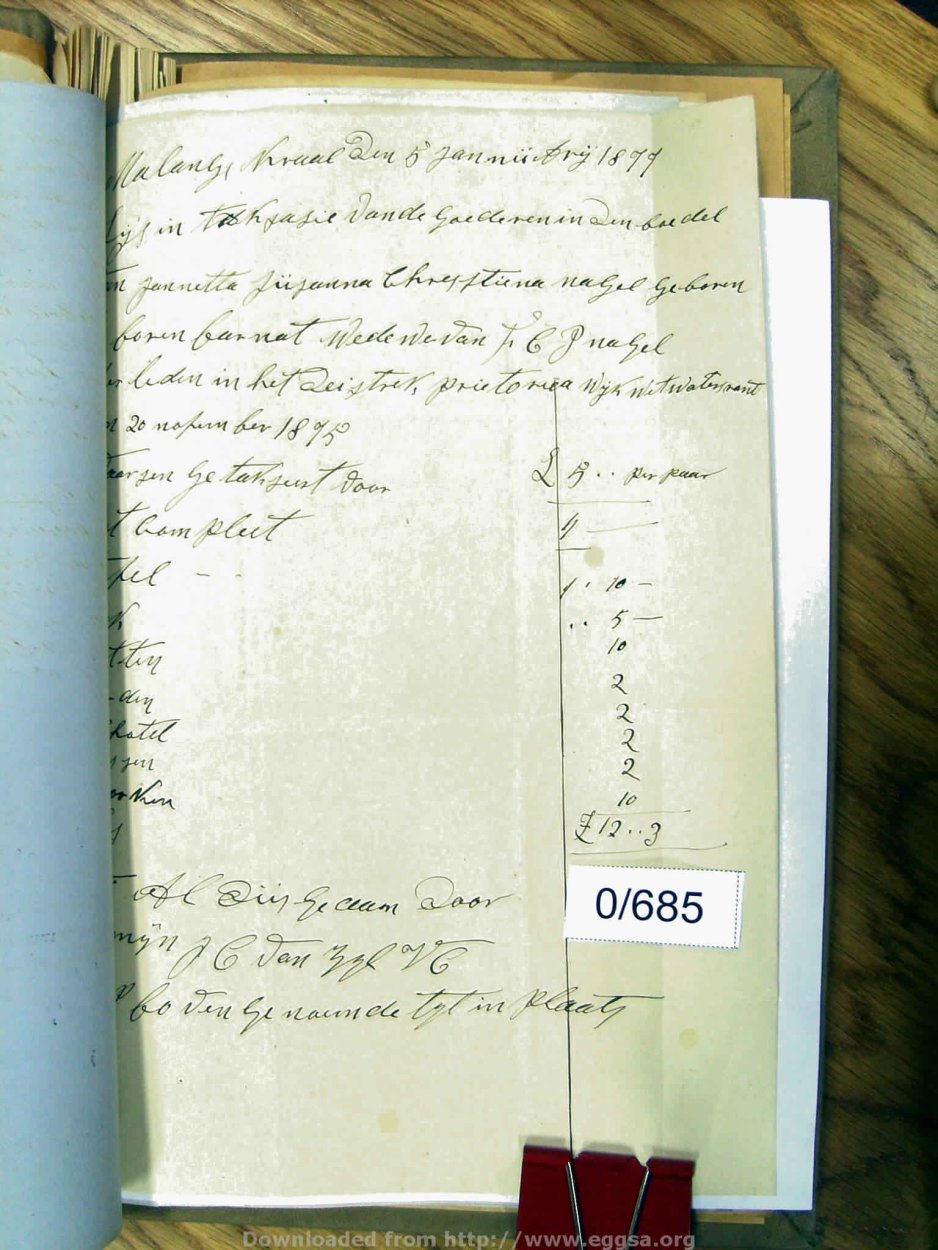 Malangs Kraal Den 5 Jannuuwrij 1877
Lijs in takhsasie vande goederen in den boedel
van Jannetta Susanna Chresstiena nagel geboren
boren barnat Wedewe van F C J nagel
leden in het Deistrek prietoriea Wijk witwatersrant
20 nofember 1875
getakseert door £ 3 .. per paar
t Compleet 4
fel - - 1 . 10 -
k .. 5 -
tten 10
den 2
hotel 2
sen 2
2
orken 10
£ 12 .. 3
Al Dus gedaan Door
mijn J C Van Zyl V C
p bo ven genoemde tyt in plaats
0/685
Downloaded from http://www.eggsa.org